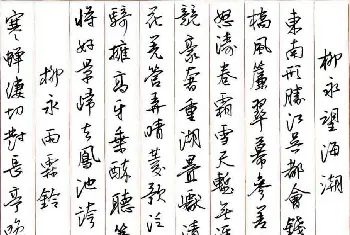 柳永望海潮
東南形勝江吳都會錢
橋風簾翠幕參差
怒濤卷霜雪天塹無涯
競豪奢重湖疊巘清
花羌管弄晴菱歌泛
騎擁高牙乘醉聽簫
將好景歸去鳳池誇
柳永雨霖鈴
寒蟬淒切對長亭晚